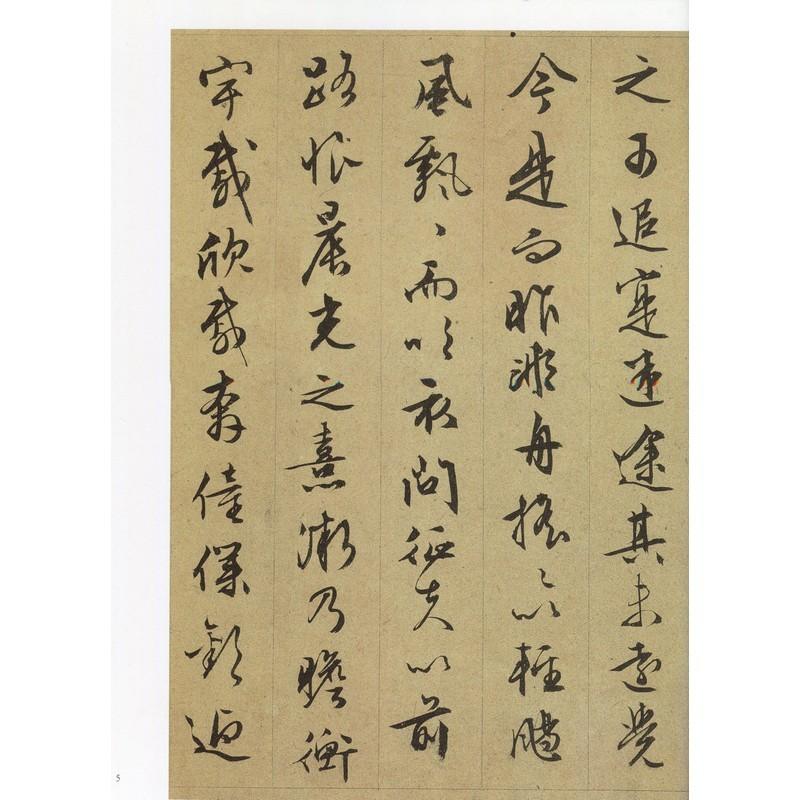 之可追寔迷途其未遠覺
今是而昨非舟搖〻以輕颺
風飄〻而吹衣問征夫以前
路恨晨光之熹微乃瞻衡
宇載欣載奔僮僕歡迎
5